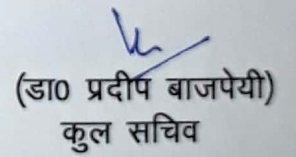 (डा० प्रदीप बाजपेयी)
कुल सचिव